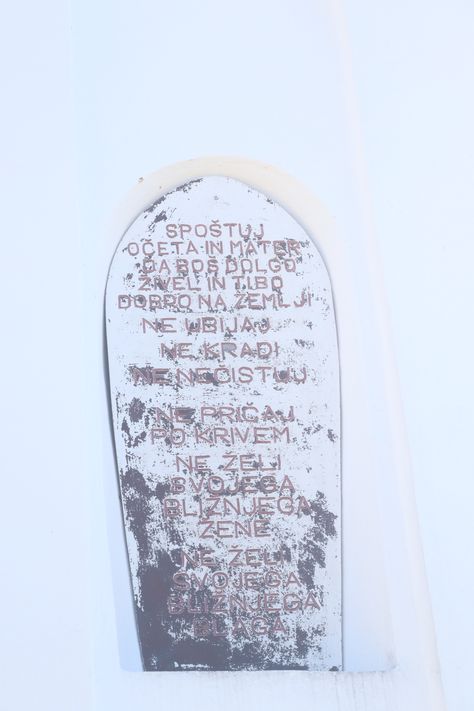 SPOŠTUJ
OČETA IN MATER
DA BOŠ DOLGO
ŽIVEL IN TI BO
DOBRO NA ZEMLJI
NE UBIJAJ
NE KRADI
NE NEČISTUJ
NE PRIČAJ
PO KRIVEM
NE ŽELI
SVOJEGA
BLIŽNJEGA
ŽENE
NE ŽELI
SVOJEGA
BLIŽNJEGA
BLAGA